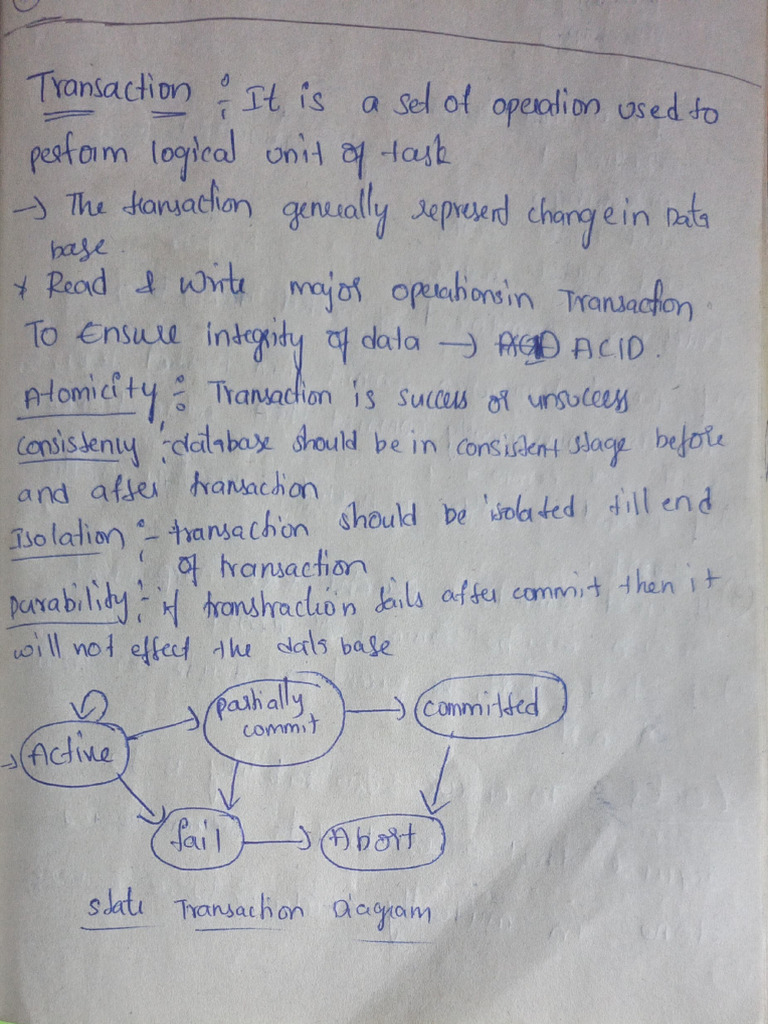 Transaction :- It is a set of operation used to
perform logical unit of task
→ The transaction generally represent change in Data
base.
* Read & Write major operations in Transaction.
To Ensure integrity of data → ACID.
Atomicity : Transaction is success or unsuccess
Consistency :- database should be in consistent stage before
and after transaction
Isolation :- transaction should be isolated, till end
of transaction
Durability :- if transtraction fails after commit, then it
will not effect the dats base
partially
commit
committed
Active
fail
Abort
state Transaction Diagram